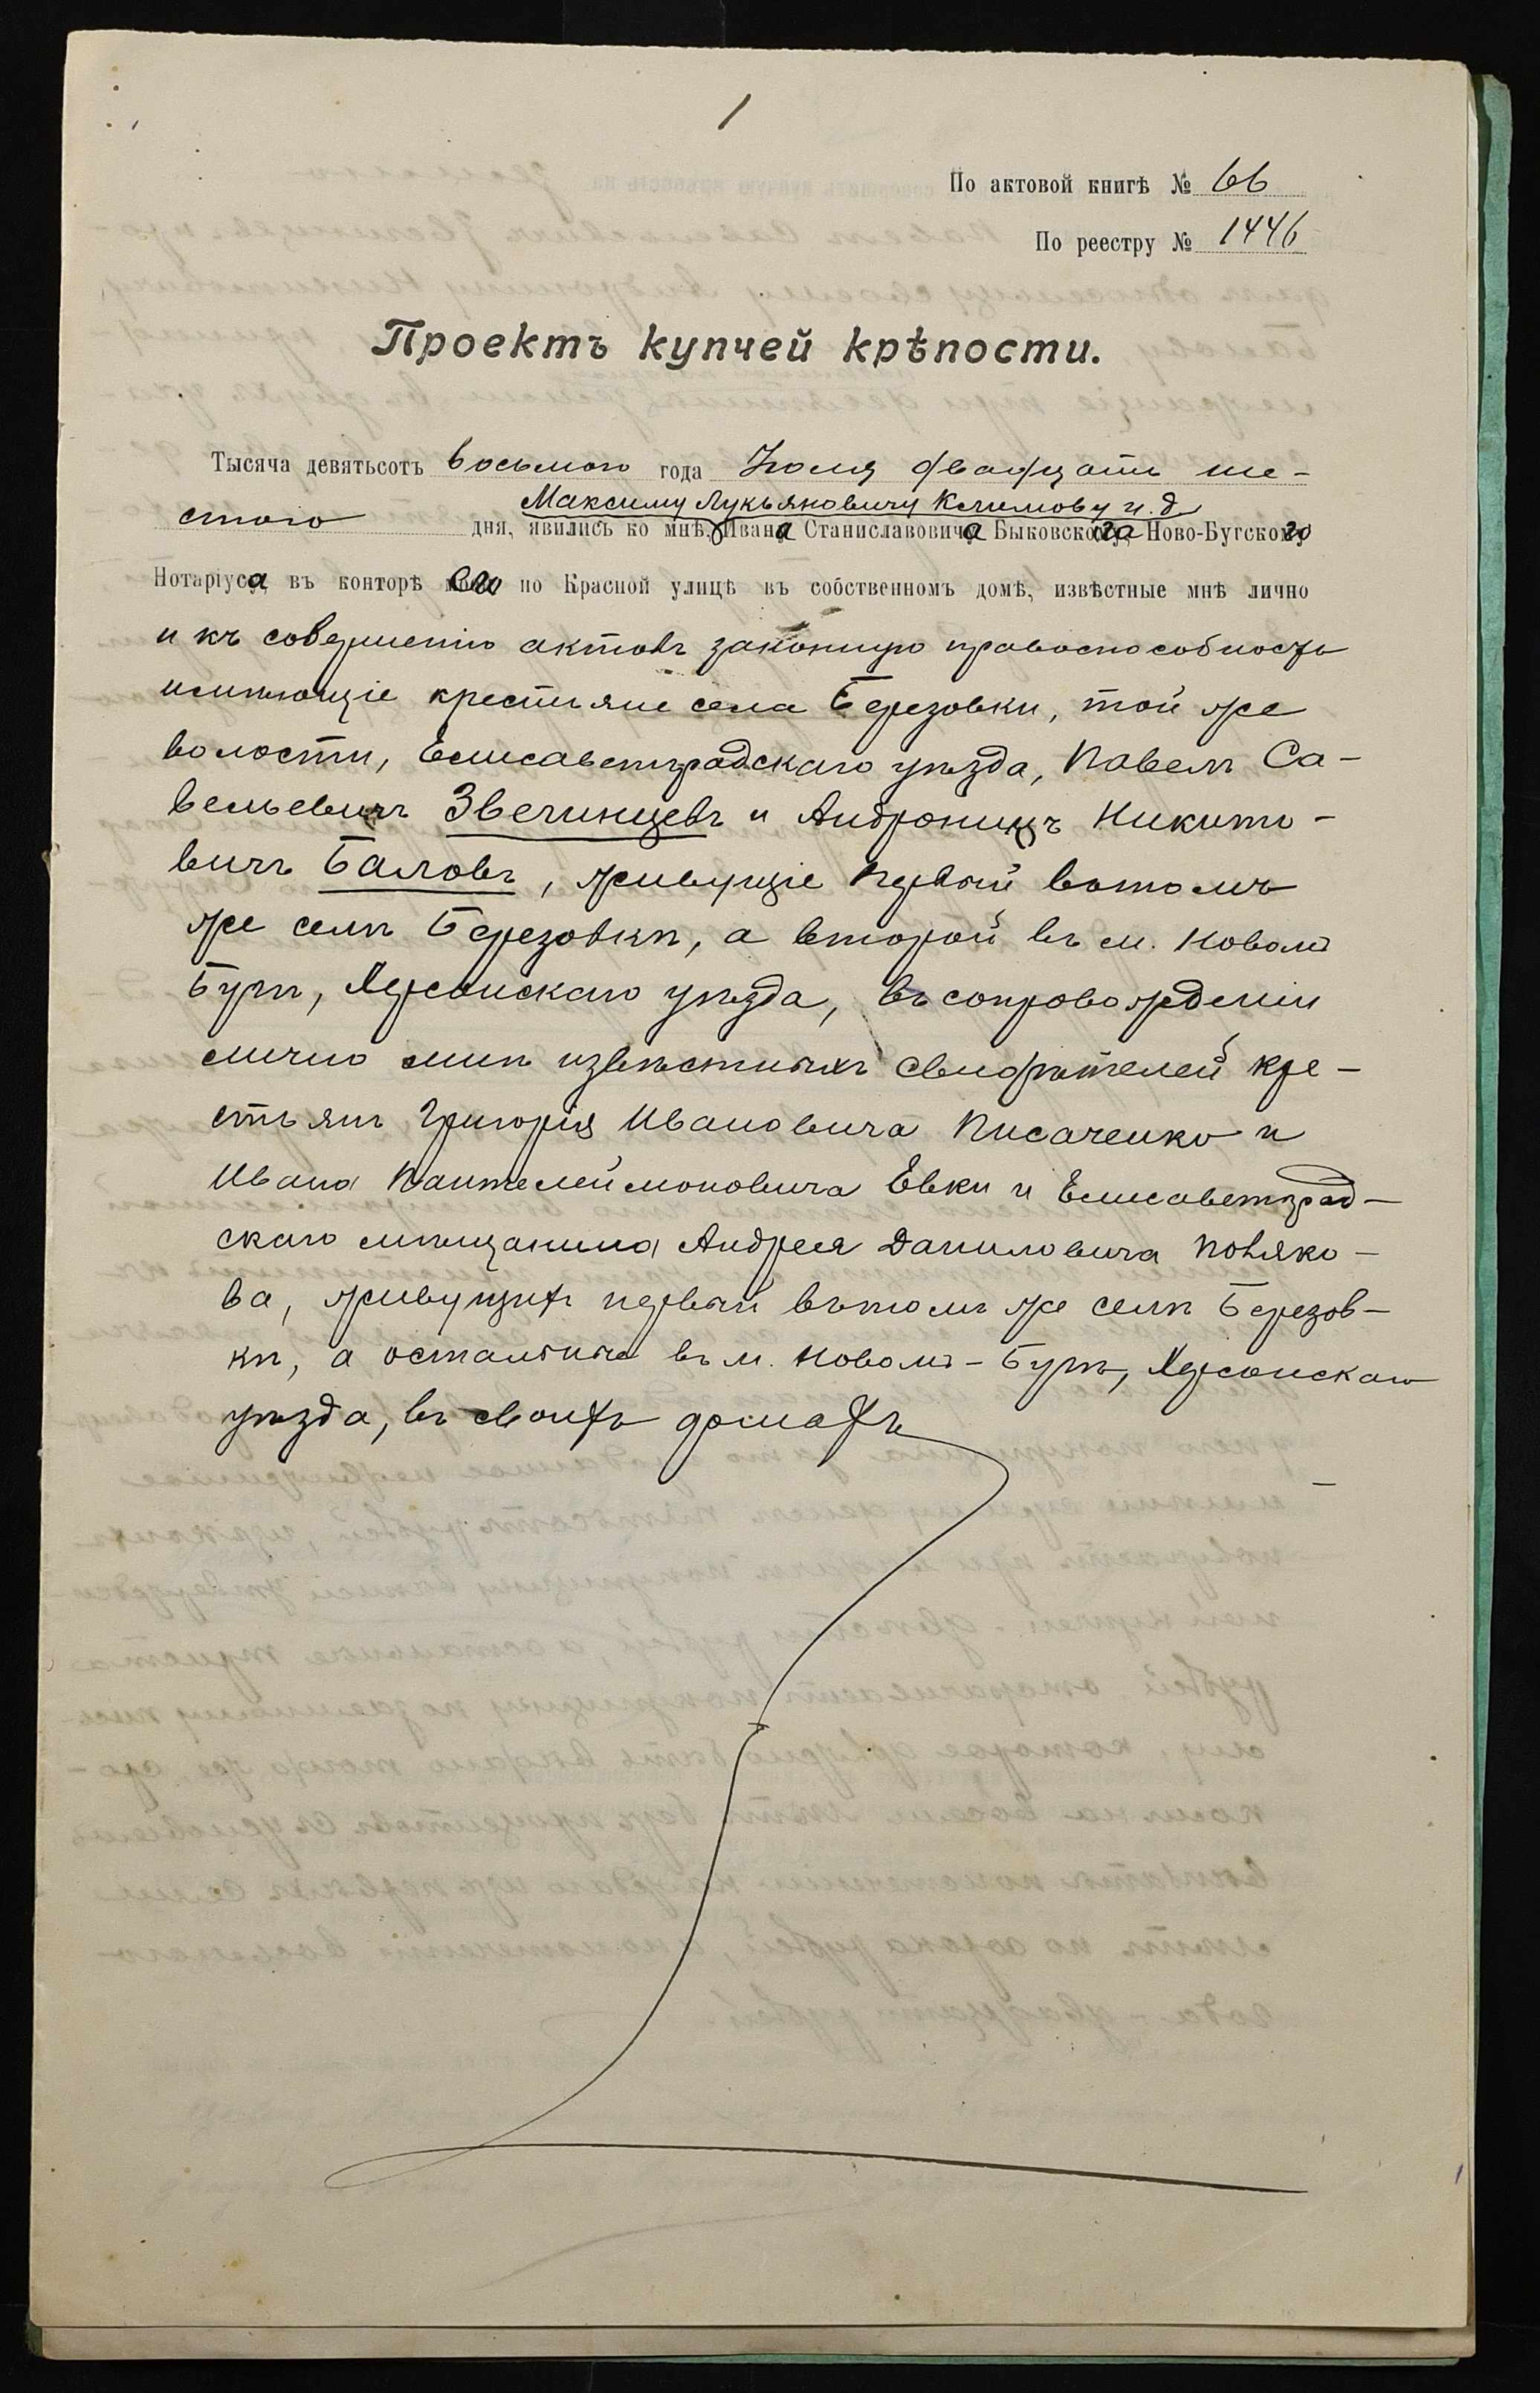 1
По актовой книгѣ № 66
По реестру № 1446
Проектъ купчей крѣпости.
Тысяча девятьсотъ восьмого года Іюля двадцать ше-
Максиму Лукьяновичу Климову и. д.
стого дня, явились ко мнѣ, Ивана Станиславовича Быковскаго Ново-Бугского
Нотаріуса въ конторѣ его по Красной улицѣ въ собственномъ домѣ, извѣстные мнѣ лично
и къ совершенію актовъ законную правоспособность
имѣющіе крестьяне села Березовки, той же
волости, Елисаветградскаго уѣзда, Павелъ Са-
вельевичъ Звечинцевъ и Андроникъ Никито-
вичъ Баловъ, живущіе первый въ томъ
же селѣ Березовкѣ, а второй въ м. Новомъ
Бугѣ, Херсонскаго уѣзда, въ сопровожденіи
лично мнѣ извѣстныхъ свидѣтелей кре-
стьянъ Григорія Ивановича Писаченко и
Ивана Пантелеймоновича Евки и Елисаветград-
скаго мѣщанина Андрея Даниловича Поляко-
ва, живущихъ первый въ томъ же селѣ Березов-
кѣ, а остальные въ м. Новомъ-Бугѣ, Херсонскаго
уѣзда, въ своихъ домахъ